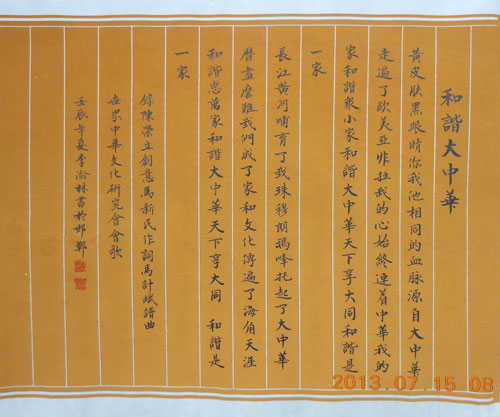 和諧大中華
黃皮膚黑眼睛你我他相同的血脉源自大中華
走遍了歐美亞非拉我的心始終連着中華我的
家和諧衆小家和諧大中華天下享大同和諧是
一家
長江黃河哺育了我珠穆朗瑪峰托起了大中華
曆盡磨難我們成了家和文化傳遍了海角天涯
和諧惠萬家和諧大中華天下享大同 和諧是
一家
錄陳榮立創意馬新民作詞馬計斌譜曲
世界中華文化研究會會歌
壬辰年夏李瀚林書於邯鄲
2013.07.15 08